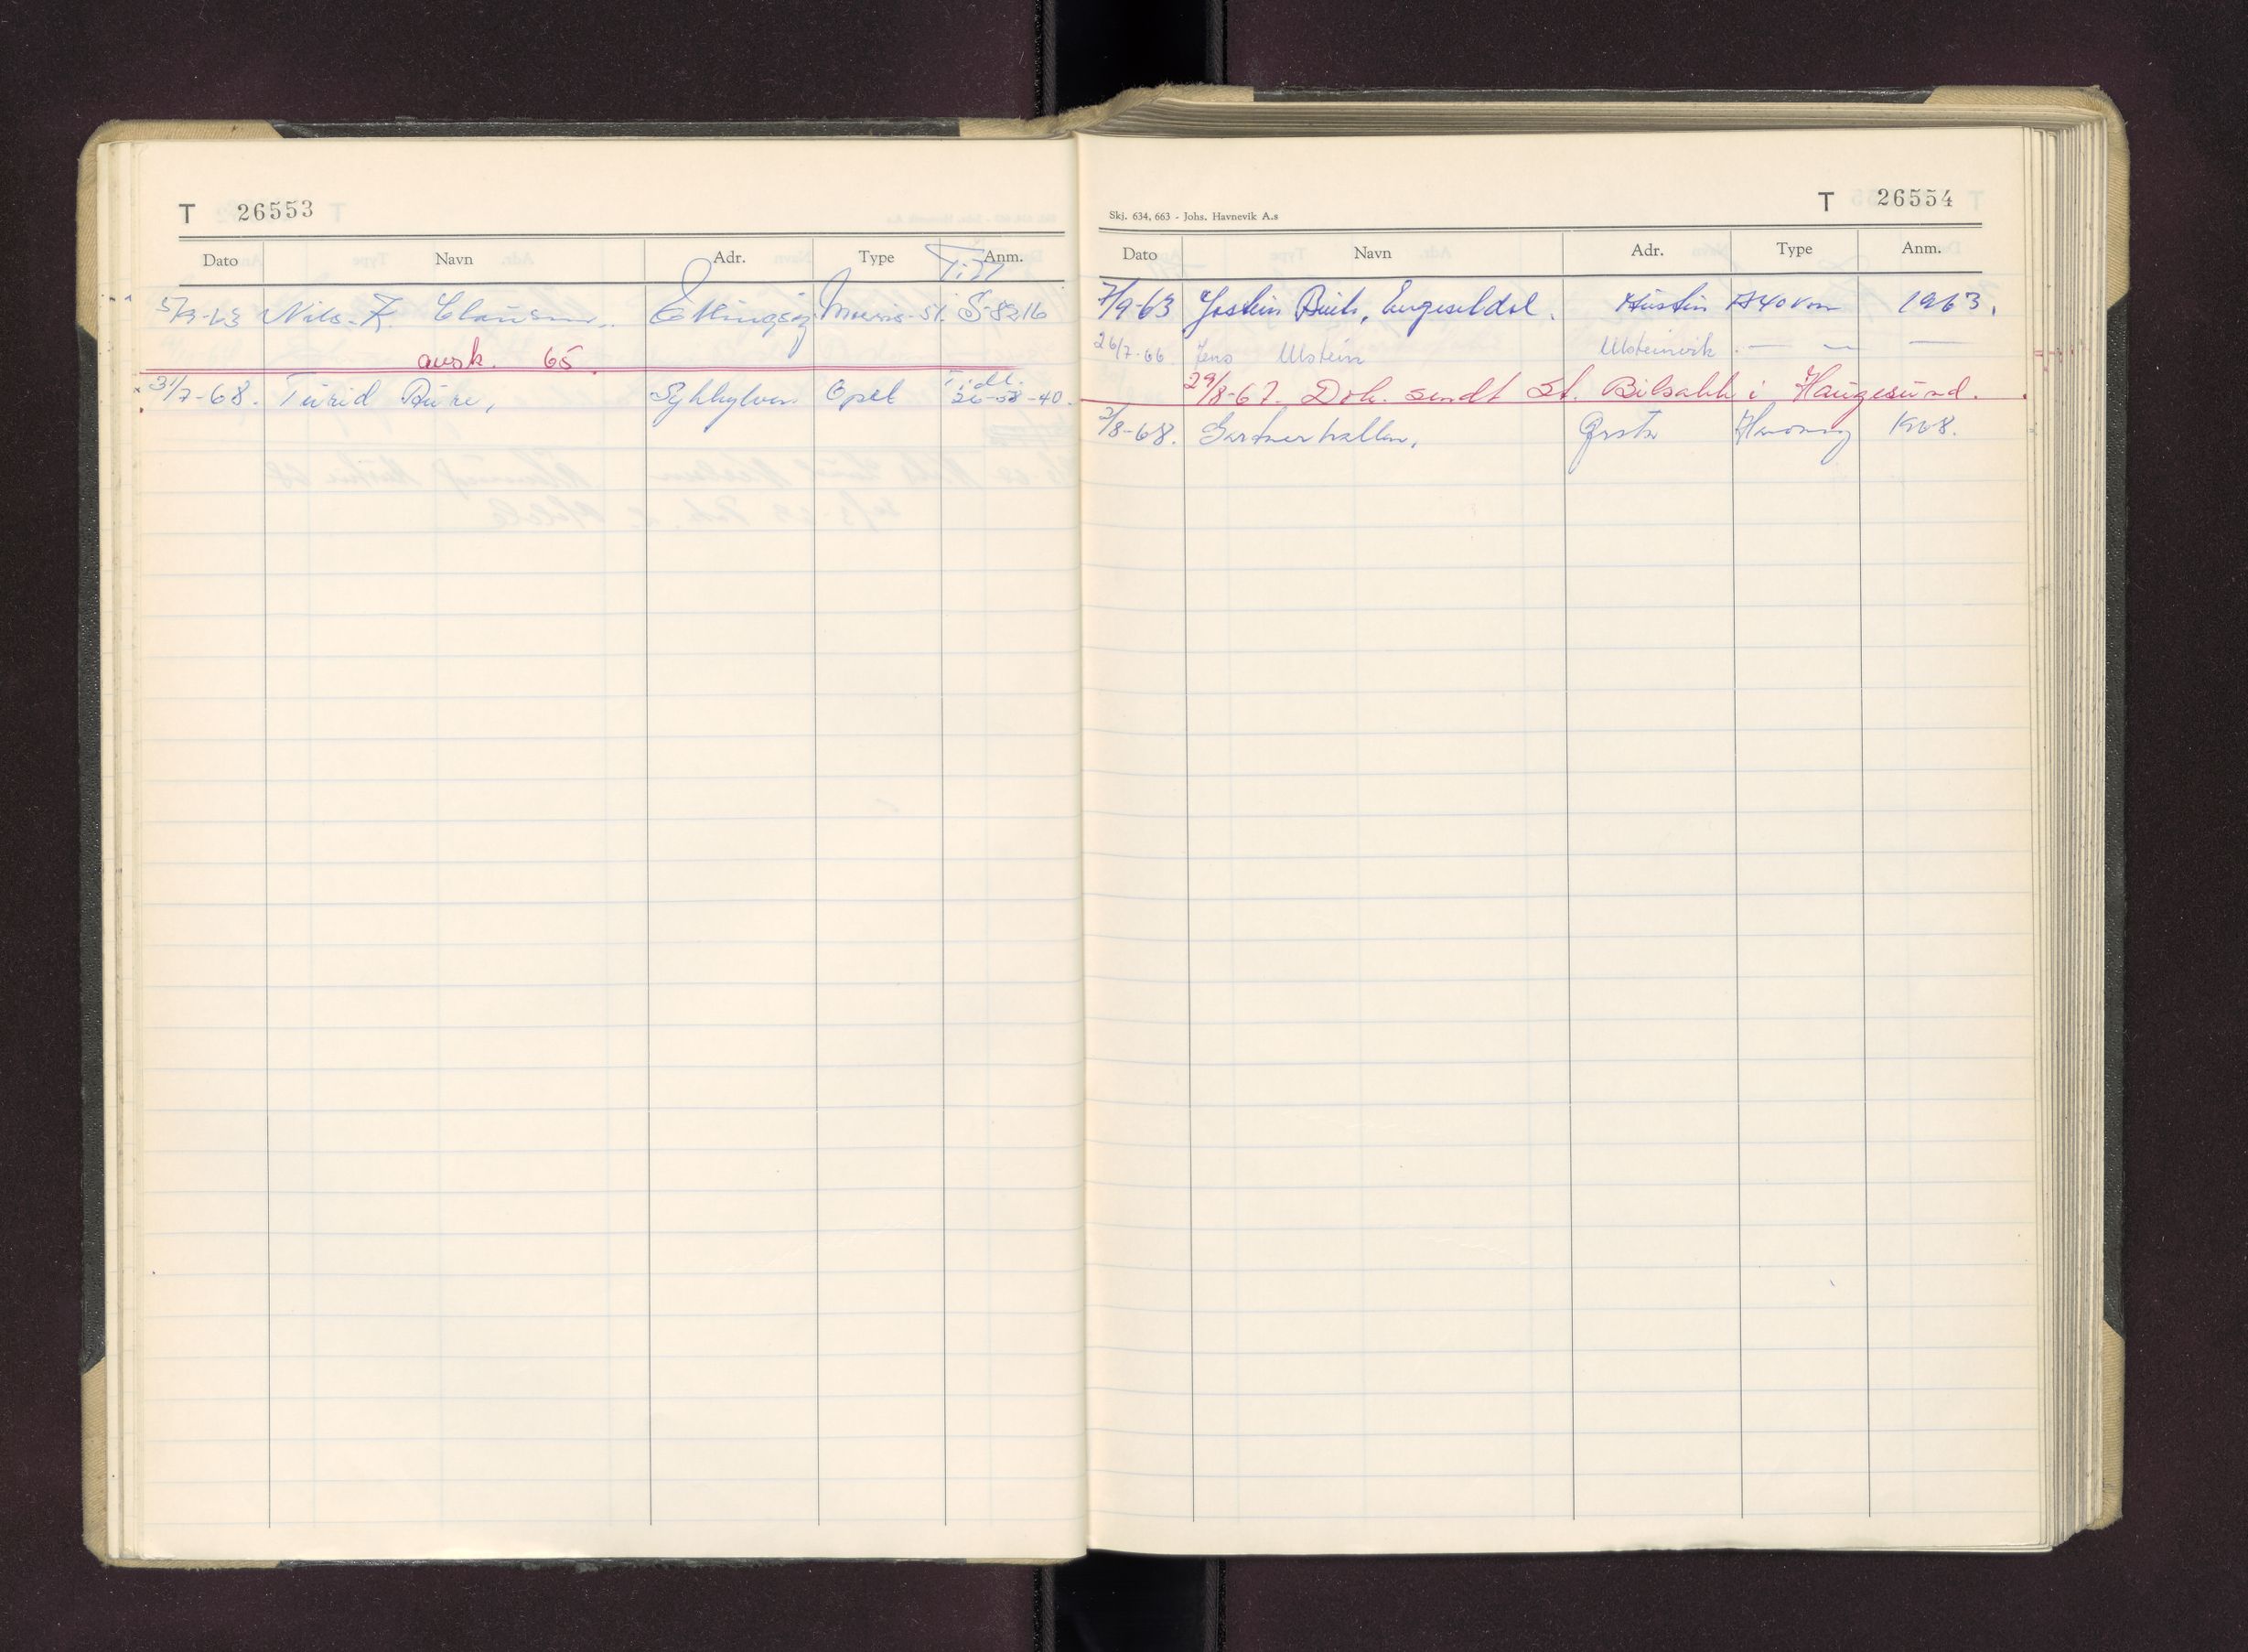 T 26553
Dato Navn Adr. Type Anm.
Tidl
5/9-63 Nils. F. Clausen. Ellingsøy Morris-51. S-8216
avsk. 65.
31/7-68. Turid Aure, Sykkylven Opel Tidl. 26-58-40.
Skj. 634, 663 - Johs. Havnevik A.s
T 26554
Dato Navn Adr. Type Anm.
7/9-63 Jostein Engeseldal. Austin A40 van 1963.
26/7-66 Jens Ulstein Ulsteinvik. — — —
29/8-67. Dok. sendt St. Bilsakk i Haugesund.
7/8-68. Gartnerhallen, Ørsta Hanomag 1968.